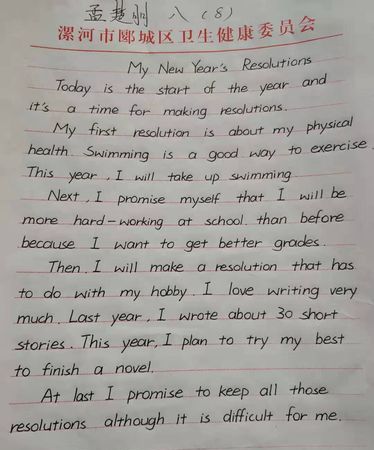 孟楚刚 八（8）
漯河市郾城区卫生健康委员会
My New Year's Resolutions
Today is the start of the year and
it's a time for making resolutions.
My first resolution is about my physical
health. Swimming is a good way to exercise.
This year, I will take up swimming.
Next, I promise myself that I will be
more hard-working at school. than before
because I want to get better grades.
Then. I will make a resolution that has
to do with my hobby. I love writing very
much. Last year, I wrote about 30 short
stories. This year, I plan to try my best
to finish a novel.
At last I promise to keep all those
resolutions although it is difficult for me.